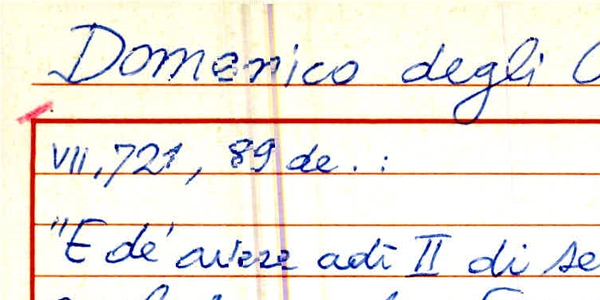 Domenico degli
VII, 721, 89 de. :
"E de' avere adì II di se